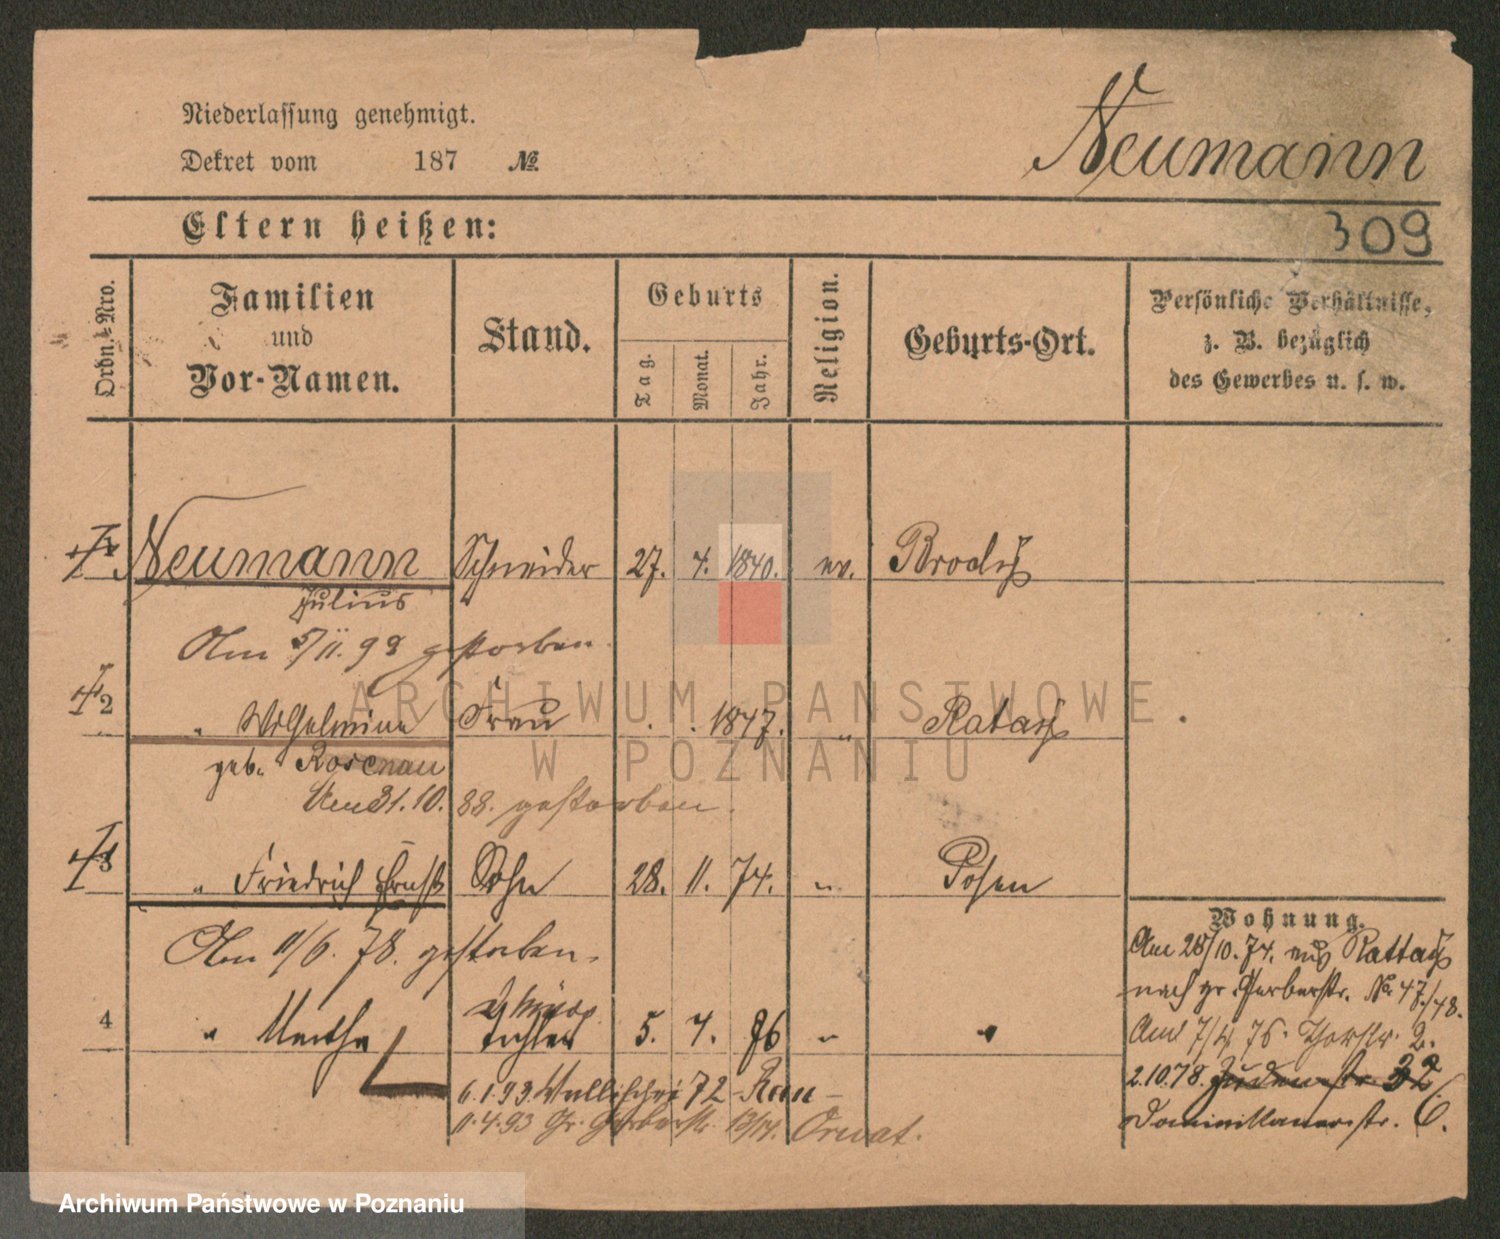 Niederlassung genehmigt.
Dekret vom 187 №
Neumann
Eltern heißen:
309
Ordn.-Nro.
Familien
und
Vor-Namen.
Stand.
Geburts
Tag.
Monat.
Jahr.
Religion.
Geburts-Ort.
Persönliche Verhältnisse,
z. B. bezüglich
des Gewerbes u. s. w.
1 Neumann Schneider 27. 4. 1840. ev. Brody
Julius
Am 5/11. 98 gestorben.
2 " Wilhelmine Frau . . 1847. " Ratay
geb. Rosenau
Am 31. 10. 88. gestorben.
3 " Friedrich Ernst Sohn 28. 11. 74. " Posen
Am 11/6. 78. gestorben.
4 " Martha Tochter 5. 4. 86 " "
6. 1. 93. Wallischei 72
11. 4. 93 Gr. Gerberstr. 13/14.
Wohnung.
Am 28/10. 74. aus Rattay
nach gr. Gerberstr. No 47/48.
Am 7/4 76. Thorstr. 2.
2. 10. 78. Judenstr. 32
Dominikanerstr. 6.
ARCHIWUM PAŃSTWOWE
W POZNANIU
Archiwum Państwowe w Poznaniu